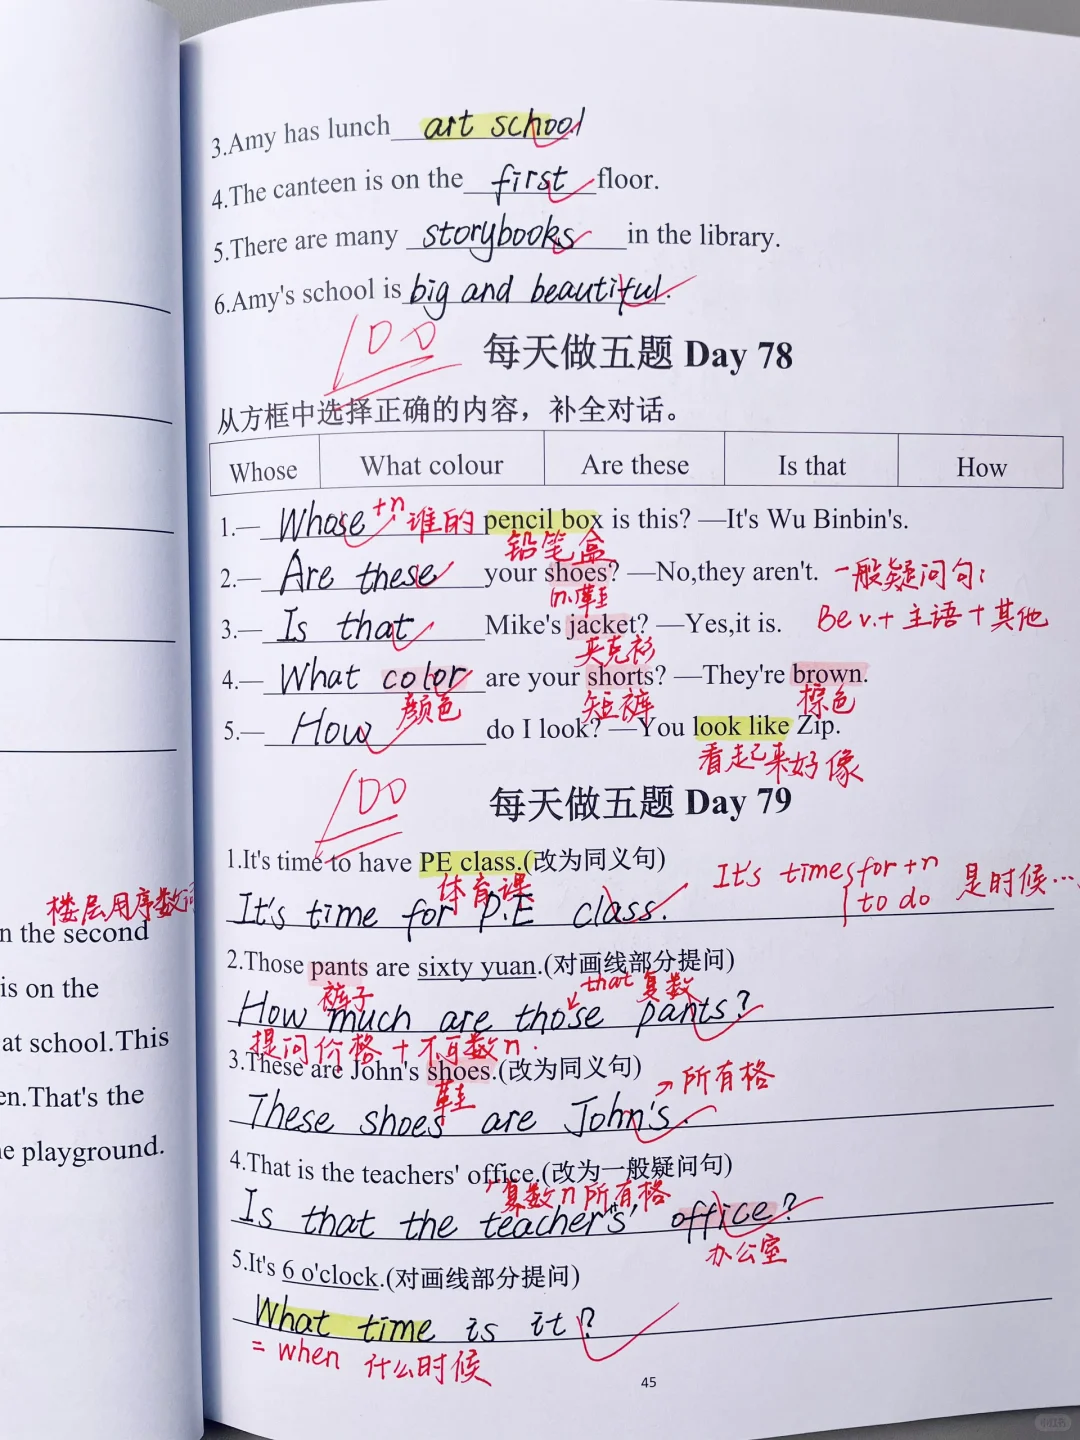 3.Amy has lunch art school
4.The canteen is on the first floor.
5.There are many storybooks in the library.
6.Amy's school is big and beautiful.
100
每天做五题 Day 78
从方框中选择正确的内容，补全对话。
Whose What colour Are these Is that How
1.— Whose +n 谁的 pencil box is this? —It's Wu Binbin's.
铅笔盒
2.— Are these your shoes? —No,they aren't. 一般疑问句:
n.鞋
3.— Is that Mike's jacket? —Yes,it is. Be v.+主语+其他
夹克衫
4.— What color are your shorts? —They're brown.
颜色 短裤 棕色
5.— How do I look? —You look like Zip.
看起来好像
100
每天做五题 Day 79
1.It's time to have PE class.(改为同义句)
体育课
It's time for P.E class.
It's time for +n
to do 是时候…
2.Those pants are sixty yuan.(对画线部分提问)
裤子 that复数
How much are those pants?
提问价格+不可数n.
3.These are John's shoes.(改为同义句)
鞋 所有格
These shoes are John's.
4.That is the teachers' office.(改为一般疑问句)
复数n所有格
Is that the teachers' office?
办公室
5.It's 6 o'clock.(对画线部分提问)
What time is it?
= when 什么时候
45
楼层用序数词
n the second
is on the
at school.This
en.That's the
e playground.